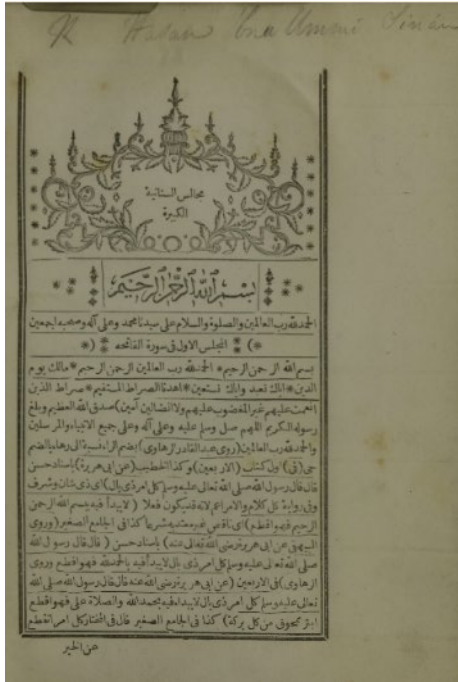 Hasan Bna Ummi Sinán
مجالس السنانية
الكبيرة
بسم الله الرحمن الرحيم
الحمد لله رب العالمين والصلوة والسلام على سيدنا محمد وعلى آله وصحبه اجمعين
*) المجلس الاول فى سورة الفاتحه (*
بسم الله الرحمن الرحيم * الحمد لله رب العالمين الرحمن الرحيم * مالك يوم
الدين * اياك نعبد واياك نستعين * اهدنا الصراط المستقيم * صراط الذين
انعمت عليهم غير المغضوب عليهم ولا الضالين آمين) صدق الله العظيم وبلغ
رسوله الكريم اللهم صل وسلم عليه وعلى آله وعلى جميع الانبياء والمرسلين
والحمد لله رب العالمين (روى عبد القادر الرهاوى) بضم الراء نسبة الى رهاء بالضم
حى (فى) اول كتاب (الاربعين) وكذا الخطيب (عن ابى هريرة) باسناد حسن
قال قال رسول الله صلى الله تعالى عليه وسلم كل امر ذى بال) اى ذى شان وشرف
وفى رواية كل كلام والامر اعم لانه قد يكون فعلا (لا يبدأ فيه ببسم الله الرحمن
الرحيم فهو اقطع) اى ناقص غير معتد به شرعا كذا فى الجامع الصغير (وروى
البيهقى عن ابى هريرة رضى الله تعالى عنه) باسناد حسن (قال قال رسول الله
صلى الله تعالى عليه وسلم كل امر ذى بال لا يبدأ فيه بالحمد لله فهو اقطع وروى
الرهاوى) فى الاربعين (عن ابى هريرة رضى الله عنه قال قال رسول الله صلى الله
تعالى عليه وسلم كل امر ذى بال لا يبدأ فيه بحمد الله والصلاة على فهو اقطع
ابتر ممحوق من كل بركة) كذا فى الجامع الصغير قال فى المختار كل امر انقطع
عن الخير